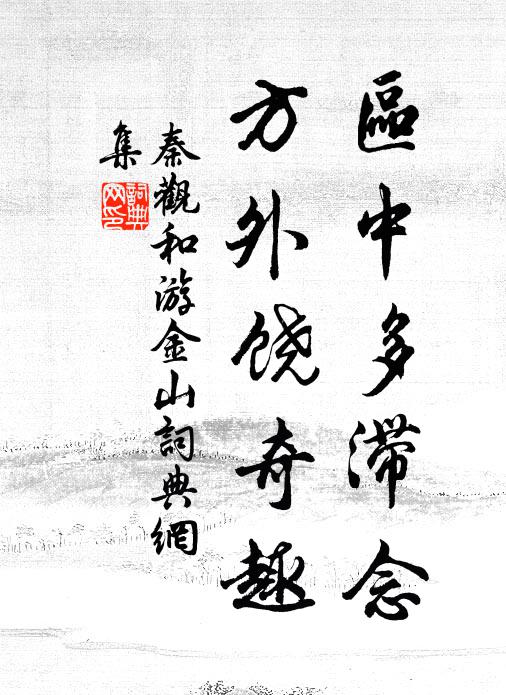 區中多滞念
方外饶奇趣
秦觀和游金山詞典網
集
詞典网印